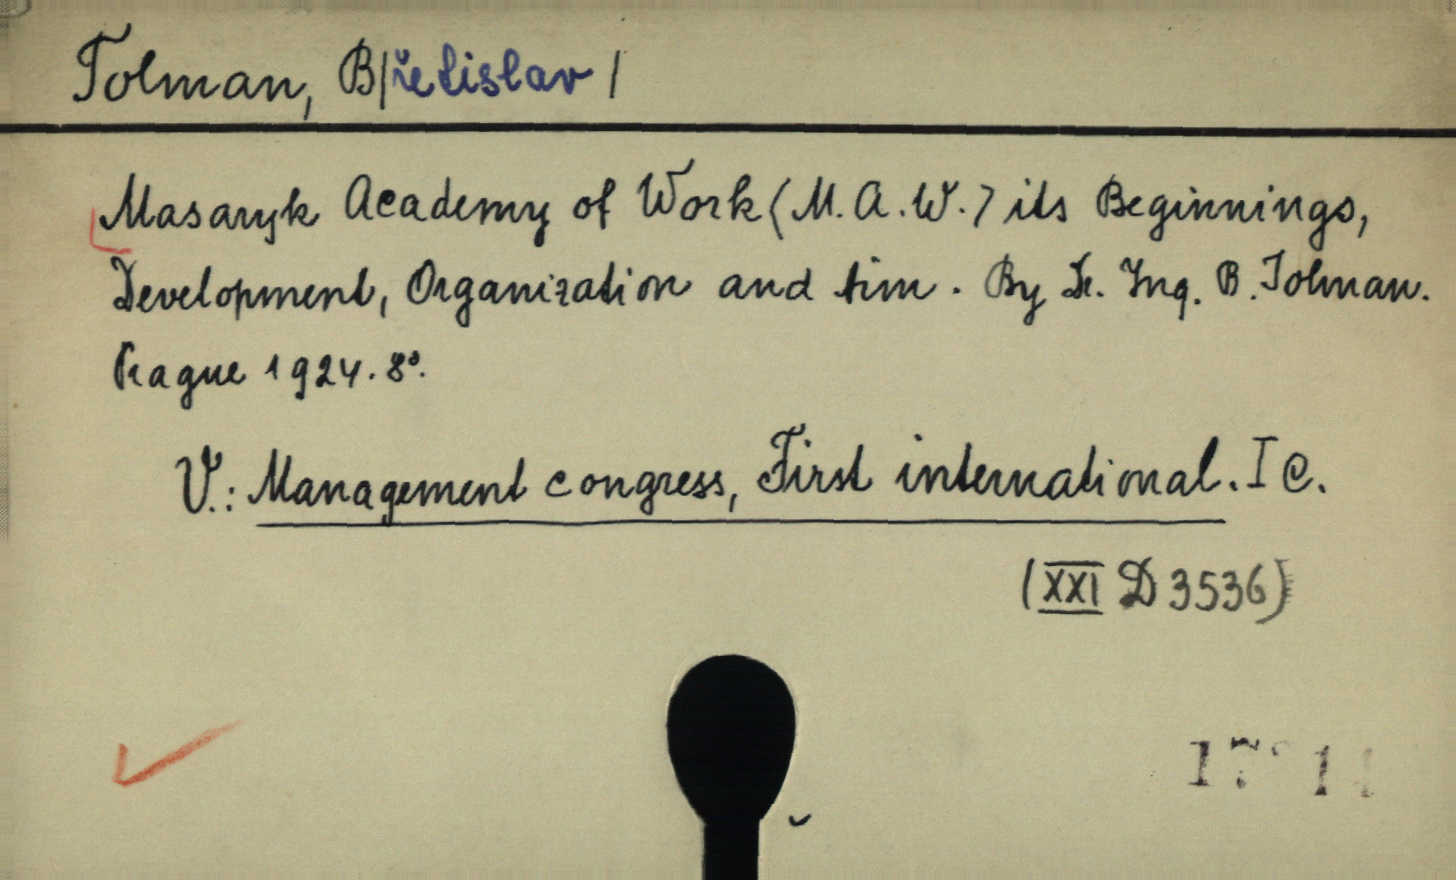 Tolman, B/řetislav/
Masaryk Academy of Work (M.A.W.) its Beginnings,
Development, Organization and Aim. By Dr. Ing. B. Tolman.
Prague 1924. 8°.
V.: Management congress, First international. I C.
(XXI D 3536)